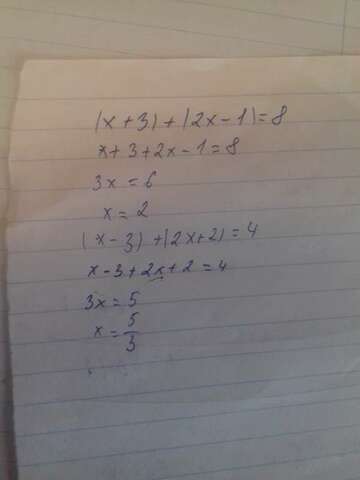 |x+3)+|2x-1|=8
x+3+2x-1=8
3x=6
x=2
(x-3)+(2x+2)=4
x-3+2x+2=4
3x=5
x=5/3